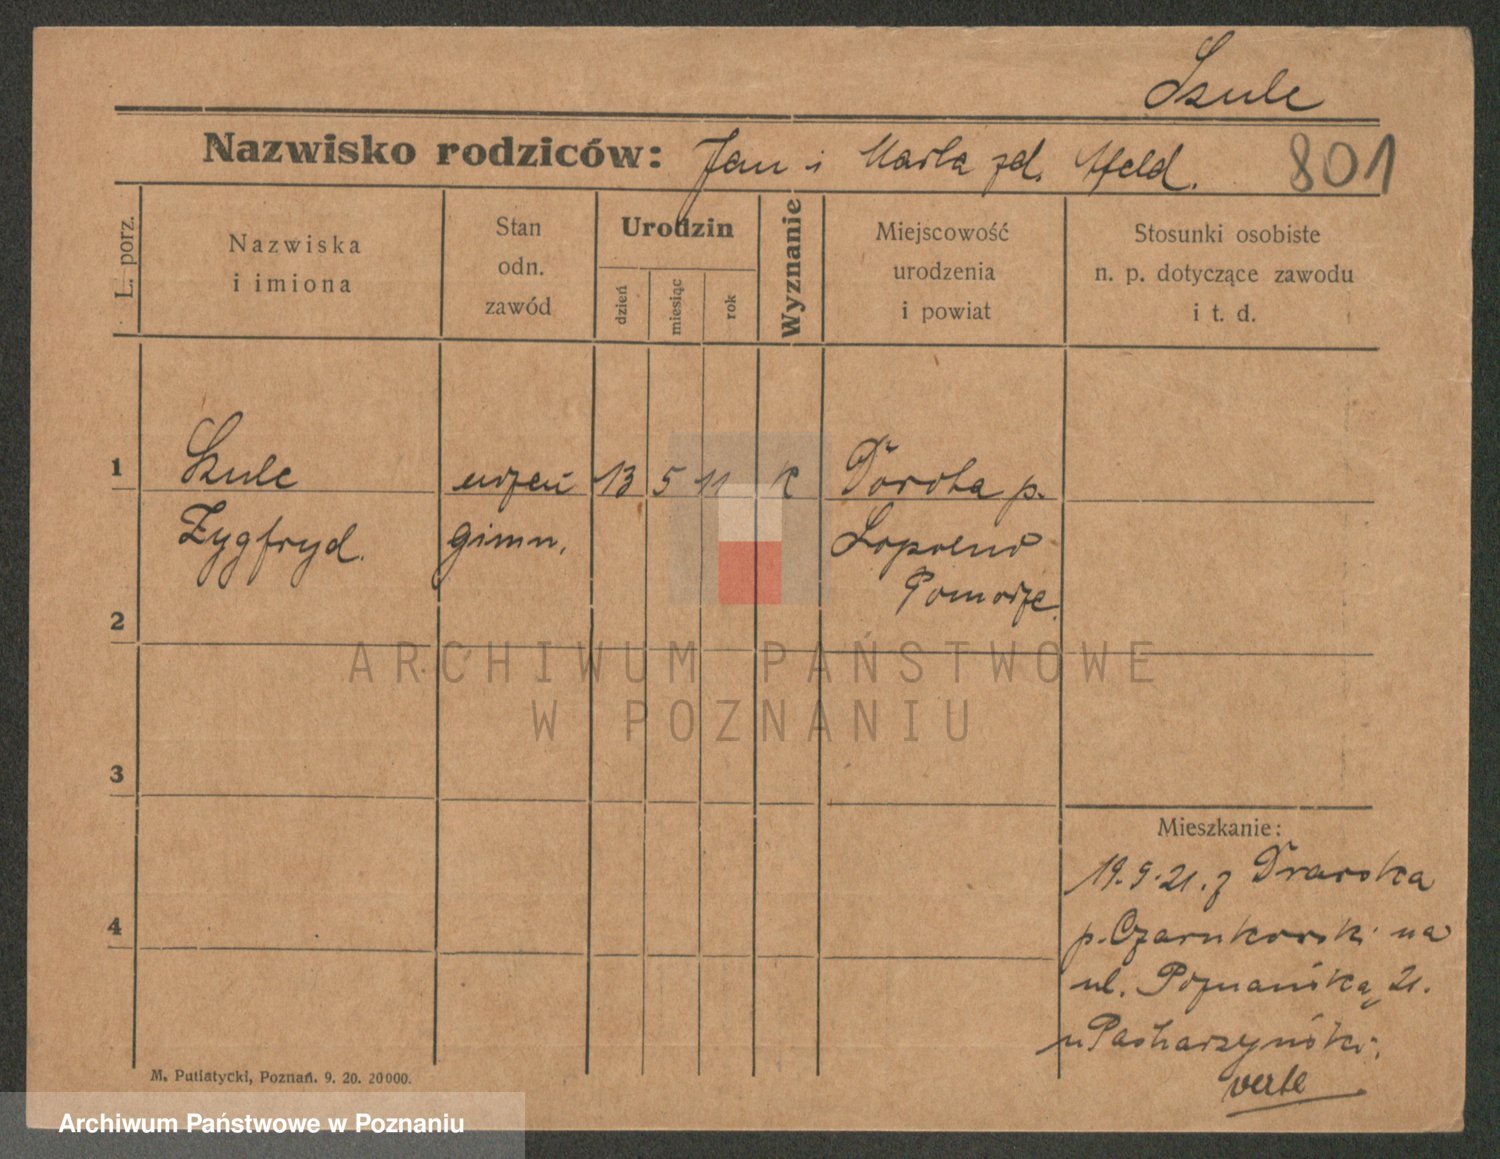 Szulc
Nazwisko rodziców: Jan i Marta zd. Affeld. 801
L. porz.
Nazwiska
i imiona
Stan
odn.
zawód
Urodzin
dzień
miesiąc
rok
Wyznanie
Miejscowość
urodzenia
i powiat
Stosunki osobiste
n. p. dotyczące zawodu
i t. d.
1 Szulc uczeń 13 5 11 k p.
Zygfryd. gimn.
Pomorze
2
ARCHIWUM PAŃSTWOWE
W POZNANIU
3
Mieszkanie:
19.9.21. z Drawska
4
p. Czarnkowski na
ul. Poznańską 21.
u
verte
M. Putiatycki, Poznań. 9. 20. 20000.
Archiwum Państwowe w Poznaniu